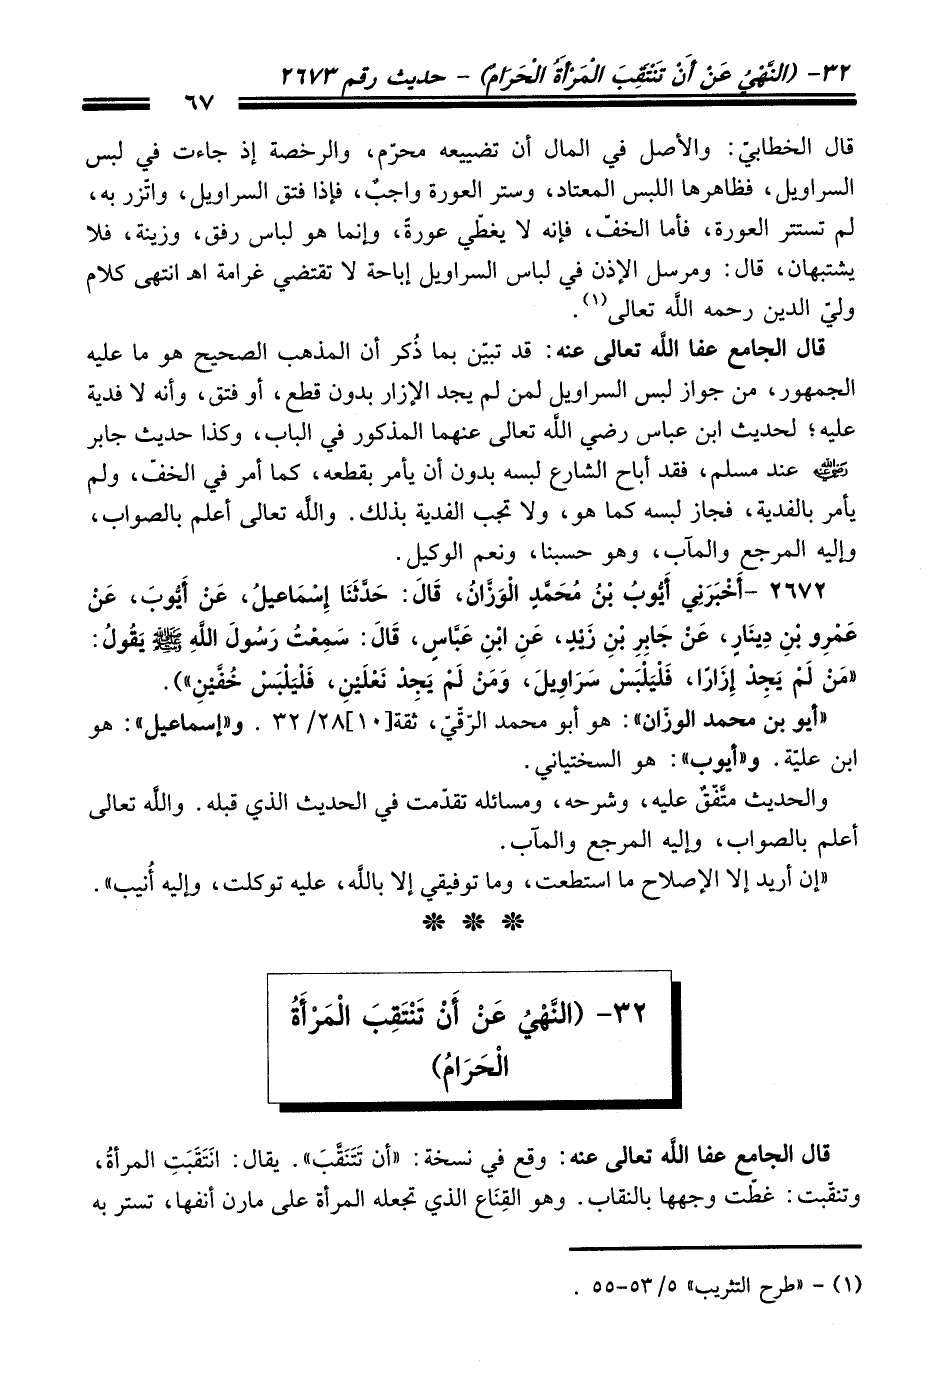 ٣٢- (النَّهْيُ عَنْ أَنْ تَنْتَقِبَ الْمَرْأَةُ الْحَرَامُ) - حديث رقم ٢٦٧٣
٦٧
قال الخطابيّ: والأصل في المال أن تضييعه محرّم، والرخصة إذ جاءت في لبس
السراويل، فظاهرها اللبس المعتاد، وستر العورة واجبٌ، فإذا فتق السراويل، واتّزر به،
لم تستتر العورة، فأما الخفّ، فإنه لا يغطّي عورةً، وإنما هو لباس رفق، وزينة، فلا
يشتبهان، قال: ومرسل الإذن في لباس السراويل إباحة لا تقتضي غرامة اهـ انتهى كلام
وليّ الدين رحمه اللَّه تعالى(١).
قال الجامع عفا اللَّه تعالى عنه: قد تبيّن بما ذُكر أن المذهب الصحيح هو ما عليه
الجمهور، من جواز لبس السراويل لمن لم يجد الإزار بدون قطع، أو فتق، وأنه لا فدية
عليه؛ لحديث ابن عباس رضي اللَّه تعالى عنهما المذكور في الباب، وكذا حديث جابر
رضي الله عنه عند مسلم، فقد أباح الشارع لبسه بدون أن يأمر بقطعه، كما أمر في الخفّ، ولم
يأمر بالفدية، فجاز لبسه كما هو، ولا تجب الفدية بذلك. واللَّه تعالى أعلم بالصواب،
وإليه المرجع والمآب، وهو حسبنا، ونعم الوكيل.
٢٦٧٢ -أَخْبَرَنِي أَيُّوبُ بْنُ مُحَمَّدٍ الْوَزَّانُ، قَالَ: حَدَّثَنَا إِسْمَاعِيلُ، عَنْ أَيُّوبَ، عَنْ
عَمْرِو بْنِ دِينَارٍ، عَنْ جَابِرِ بْنِ زَيْدٍ، عَنِ ابْنِ عَبَّاسٍ، قَالَ: سَمِعْتُ رَسُولَ اللَّهِ ﷺ يَقُولُ:
«مَنْ لَمْ يَجِدْ إِزَارًا، فَلْيَلْبَسْ سَرَاوِيلَ، وَمَنْ لَمْ يَجِدْ نَعْلَيْنِ، فَلْيَلْبَسْ خُفَّيْنِ»).
«أيو بن محمد الوزّان»: هو أبو محمد الرّقّيّ، ثقة[١٠]٣٢/٢٨ . و«إسماعيل»: هو
ابن عليّة. و«أيوب»: هو السختياني.
والحديث متَّفقٌ عليه، وشرحه، ومسائله تقدّمت في الحديث الذي قبله. واللَّه تعالى
أعلم بالصواب، وإليه المرجع والمآب.
«إن أريد إلا الإصلاح ما استطعت، وما توفيقي إلا باللَّه، عليه توكلت، وإليه أُنيب».
* * *
٣٢- (النَّهْيُ عَنْ أَنْ تَنْتَقِبَ الْمَرْأَةُ
الْحَرَامُ)
قال الجامع عفا اللَّه تعالى عنه: وقع في نسخة: «أن تَتَنَقَّبَ». يقال: انَتَقَبَتِ المرأةُ،
وتنقّبت: غطّت وجهها بالنقاب. وهو القِنَاع الذي تجعله المرأة على مارن أنفها، تستر به
(١) - «طرح التثريب» ٥/ ٥٣-٥٥ .